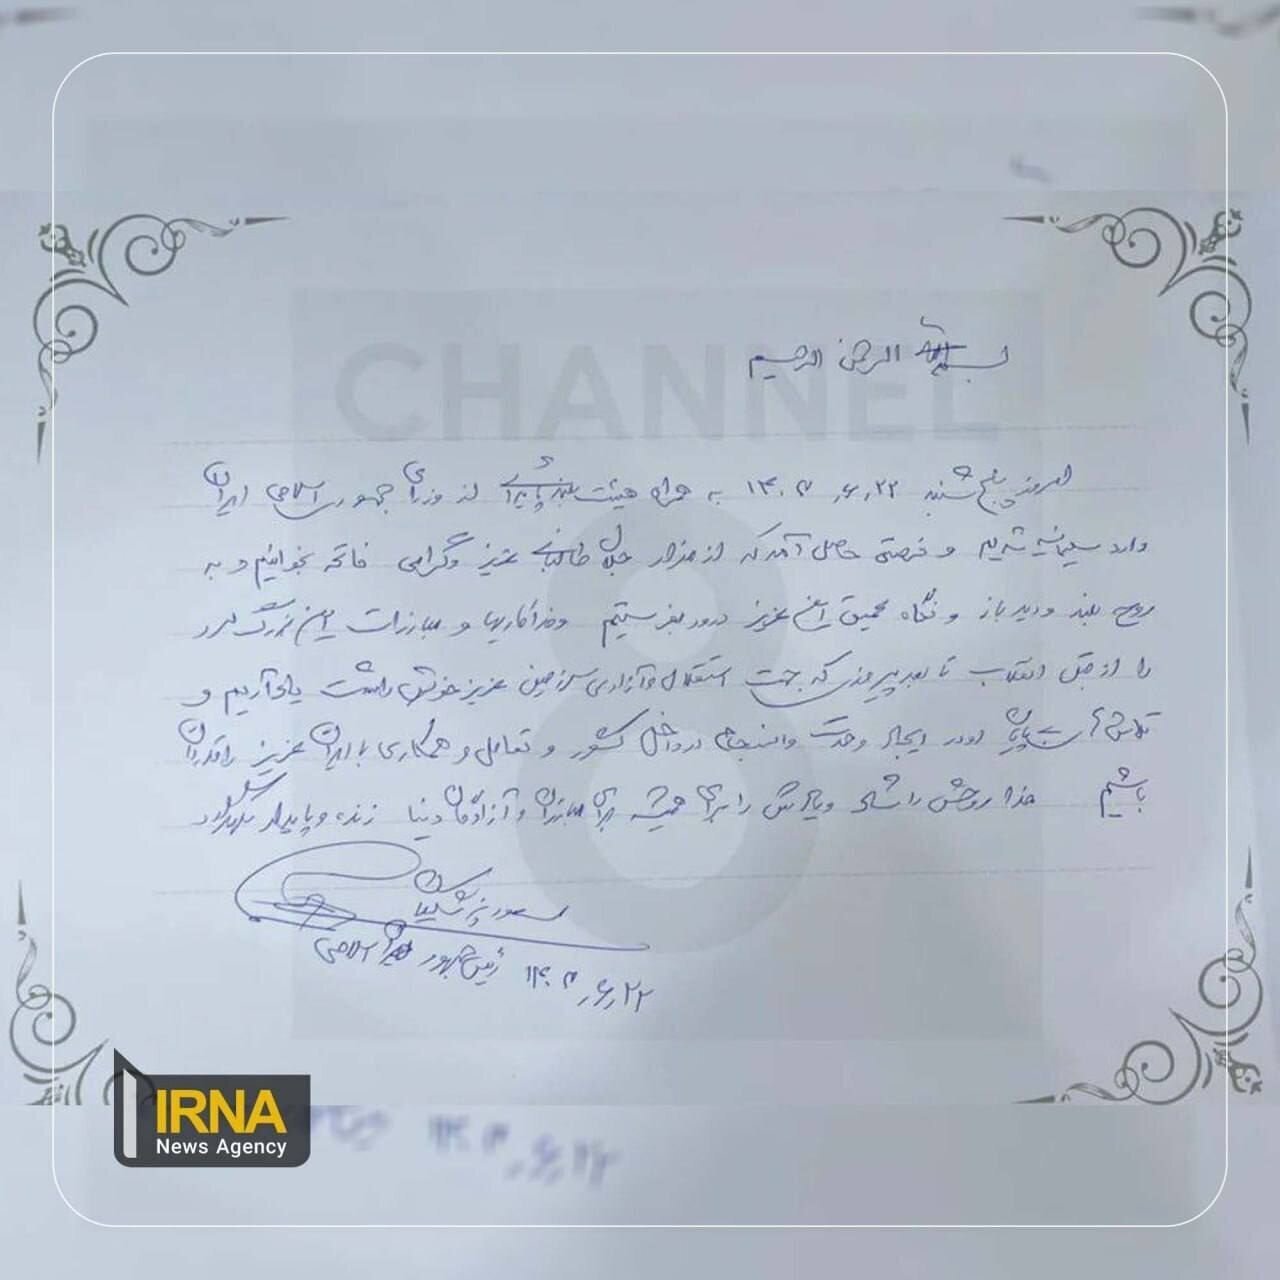 CHANNEL
8
بسم الله الرحمن الرحیم
امروز پنج شنبه ۱۴۰۳٫۶٫۲۲ به همراه هیئت بلندپایه‌ای از وزرای جمهوری اسلامی ایران
وارد سلیمانیه شدیم و فرصتی حاصل آمد که از مزار جلال طالبانی عزیز و گرامی فاتحه بخوانیم و به
روح بلند و دید باز و نگاه عمیق این عزیز درود بفرستیم و فداکاریها و مبارزات این بزرگ مرد
را از قبل انقلاب تا بعد پیروزی که جهت استقلال و آزادی سرزمین عزیز خویش داشت یاد آریم و
تلاشهای بی پایان او در ایجاد وحدت و انسجام در داخل کشور و تعامل و همکاری با ایران عزیز را قدردان
باشیم خدا روحش را شاد و یادش را برای همیشه برای مبارزان و آزادگان دنیا زنده و پایدار نگهدارد
مسعود پزشکیان
رئیس جمهور اسلامی
۱۴۰۳٫۶٫۲۲
IRNA
News Agency